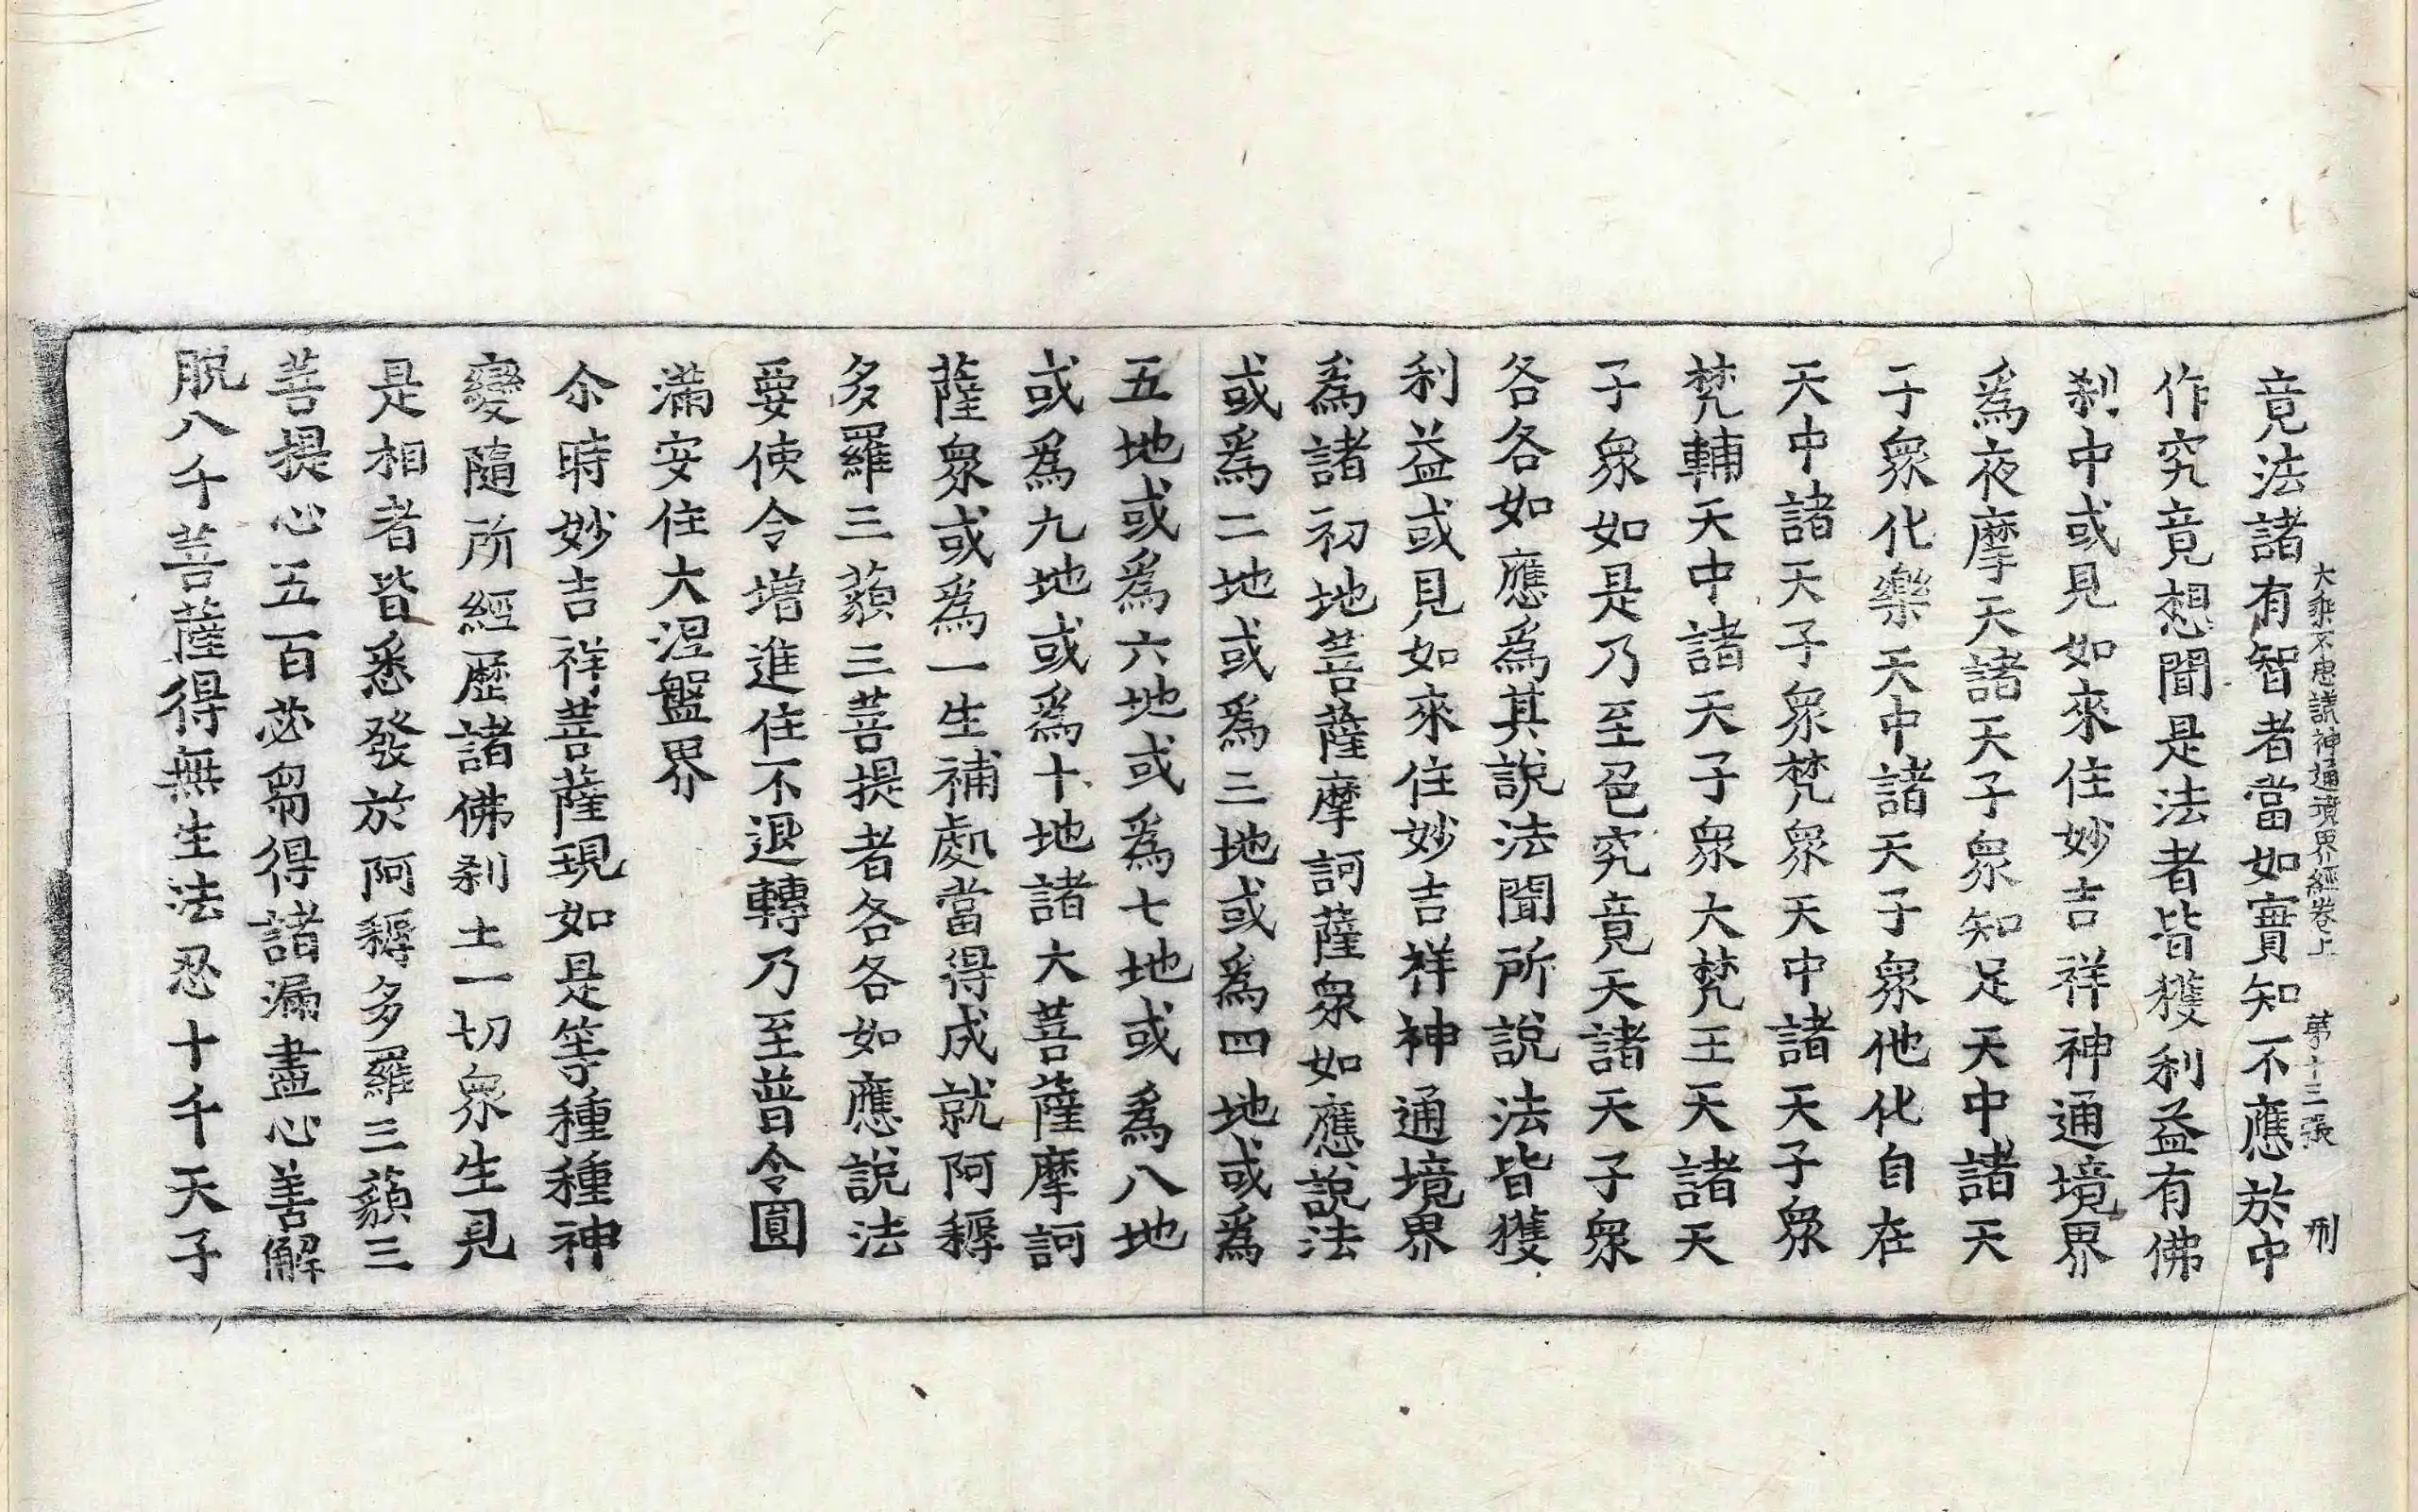 大乘不思議神通境界經卷上 第十三張 刑
竟法諸有智者當如實知不應於中
作究竟想聞是法者皆獲利益有佛
刹中或見如來住妙吉祥神通境界
爲夜摩天諸天子衆知足天中諸天
子衆化樂天中諸天子衆他化自在
天中諸天子衆梵衆天中諸天子衆
梵輔天中諸天子衆大梵王天諸天
子衆如是乃至色究竟天諸天子衆
各各如應爲其說法聞所說法皆獲
利益或見如來住妙吉祥神通境界
爲諸初地菩薩摩訶薩衆如應說法
或爲二地或爲三地或爲四地或爲
五地或爲六地或爲七地或爲八地
或爲九地或爲十地諸大菩薩摩訶
薩衆或爲一生補處當得成就阿耨
多羅三藐三菩提者各各如應說法
要使令增進住不退轉乃至普令圓
滿安住大涅盤界
尒時妙吉祥菩薩現如是等種種神
變隨所經歷諸佛刹土一切衆生見
是相者皆悉發於阿耨多羅三藐三
菩提心五百苾芻得諸漏盡心善解
脫八千菩薩得無生法忍十千天子